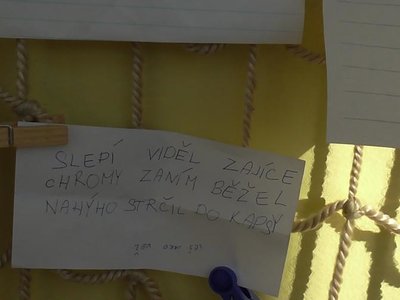 SLEPÍ VIDĚL ZAJÍCE
CHROMY ZANÍM BĚŽEL
NAHÝHO STRČIL DO KAPSY